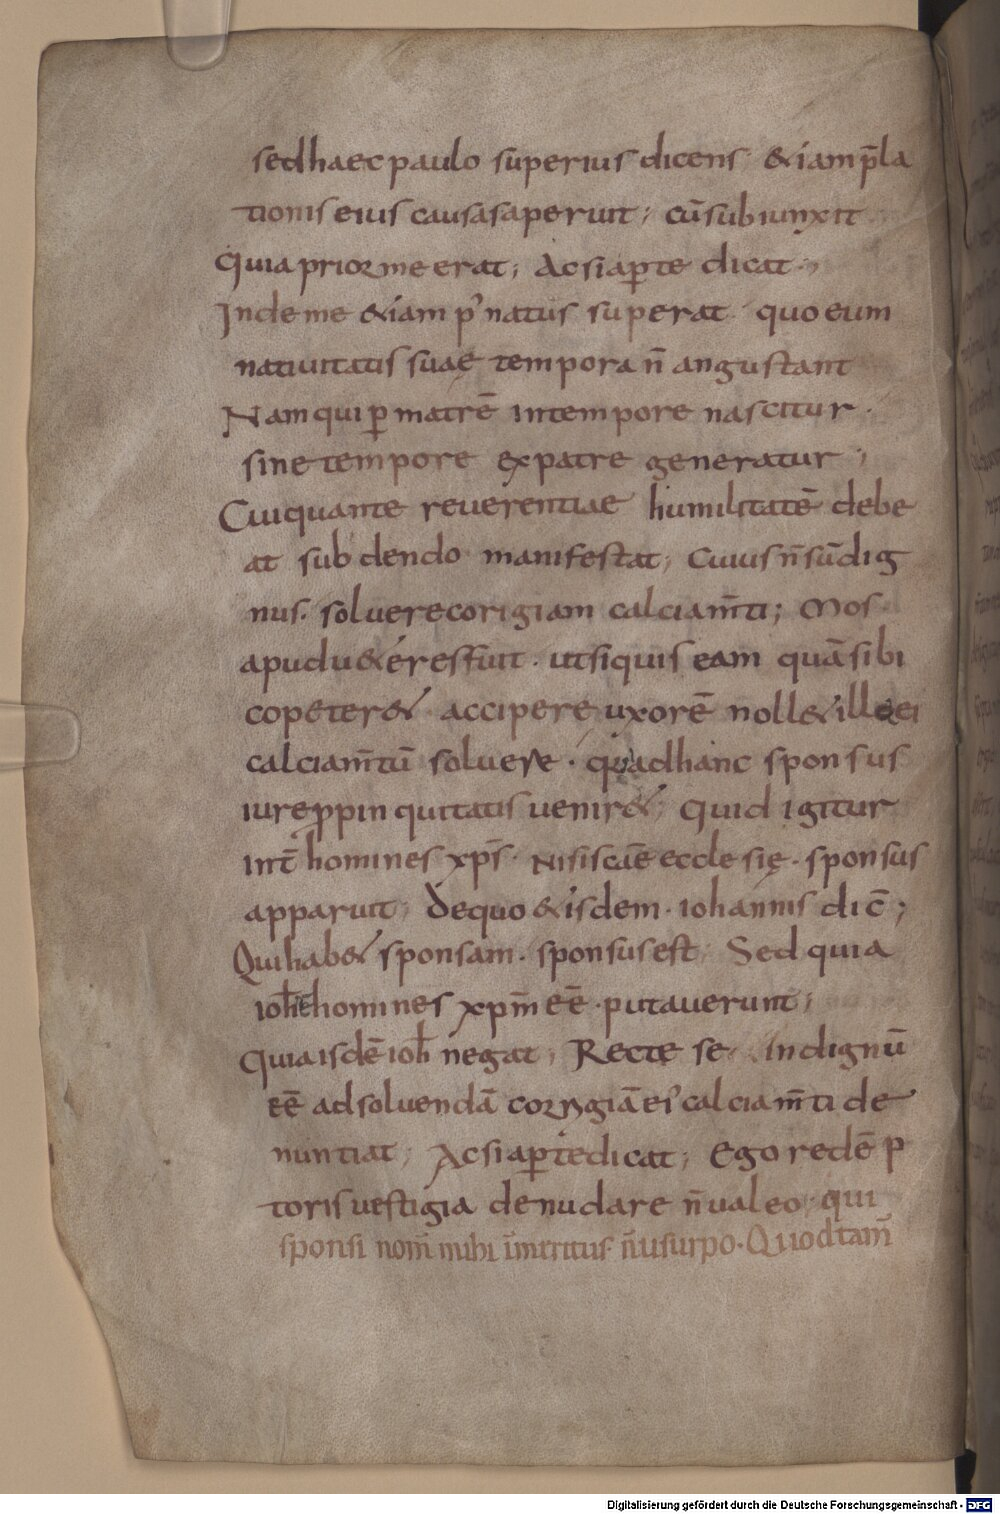 sed haec paulo superius dicens & iam p̄la
tionis eius causas aperuit; cū subiunxit
Quia prior me erat; Ac si aꝑte dicat;
Inde me & iam pꝰ natus superat quo eum
nativitatis suae tempora n̄ angustant
Nam qui ꝑ matrē in tempore nascitur.
sine tempore ex patre generatur;
Cui quante reuerentiae humilitatē debe
at sub dendo manifestat; Cuius n̄ sū dig
nus. soluere corigiam calciam̄ti; Mos
apud u&eres fuit. ut si quis eam quā sibi
copeter& accipere uxorē noll& ille ei
calciam̄tū soluere. qui ad hanc sponsus
iure ꝓpinquitatis uenir& Quid igitur
int̄ homines xp̄s. Nisi scāe ecclesię. sponsus
apparuit; De quo & isdem. iohannis dic̄;
Qui hab& sponsam. sponsus est; Sed quia
ioh̄ē homines xpm̄ eē. putauerunt;
Quia isdē ioh̄ negat; Recte se indignū
eē ad soluendā corrigiā eiꝰ calciam̄ti de
nuntiat; Ac si aꝑte dicat; Ego redēp
toris uestigia denudare n̄ ualeo. qui
sponsi nom̄ mihi īmeritus n̄ usurpo. Quod tam̄
Digitalisierung gefördert durch die Deutsche Forschungsgemeinschaft - DFG